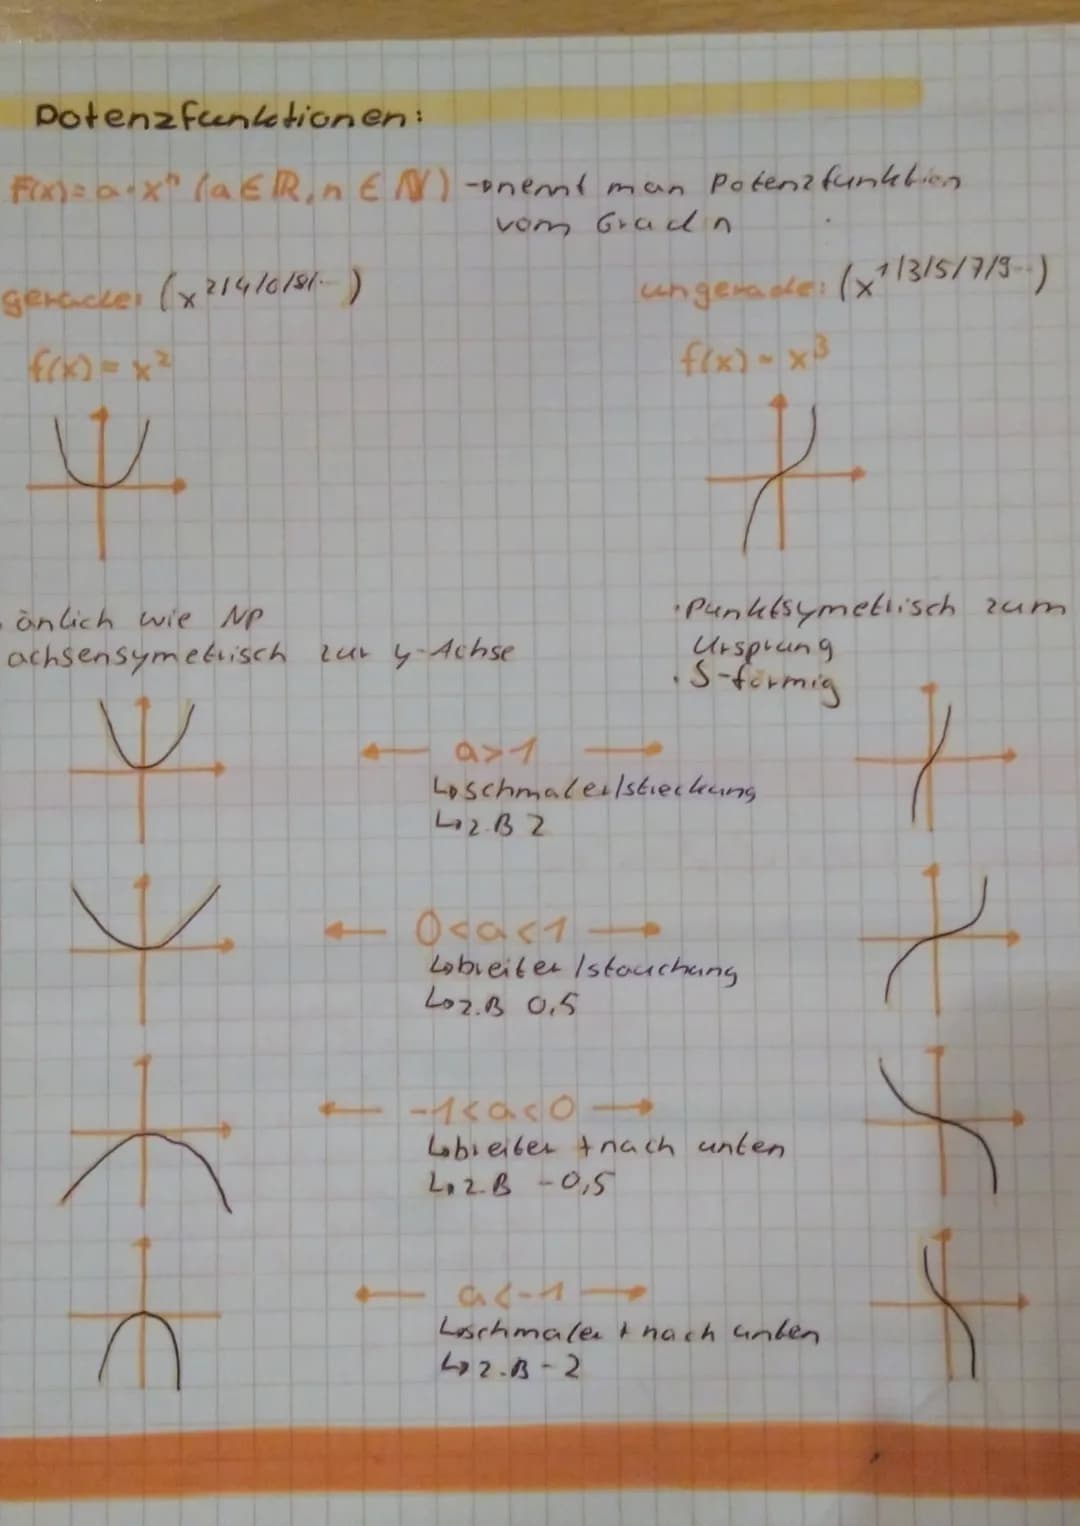 Potenzfunktionen:
F(x) = a · xⁿ (a ∈ ℝ, n ∈ ℕ) → nennt man Potenzfunktion
vom Grad n
gerade: (x^2/4/6/8/...)
ungerade: (x^1/3/5/7/9...)
f(x) = x²
f(x) = x³
· änlich wie NP
achsensymetrisch zur y-Achse
· Punktsymetrisch zum
Ursprung
· S-förmig
← a>1 →
↳ schmaler/streckung
↳ z.B 2
← 0<a<1 →
↳ breiter/stauchung
↳ z.B 0,5
← -1<a<0 →
↳ breiter + nach unten
↳ z.B -0,5
← a<-1 →
↳ schmaler + nach unten
↳ z.B -2